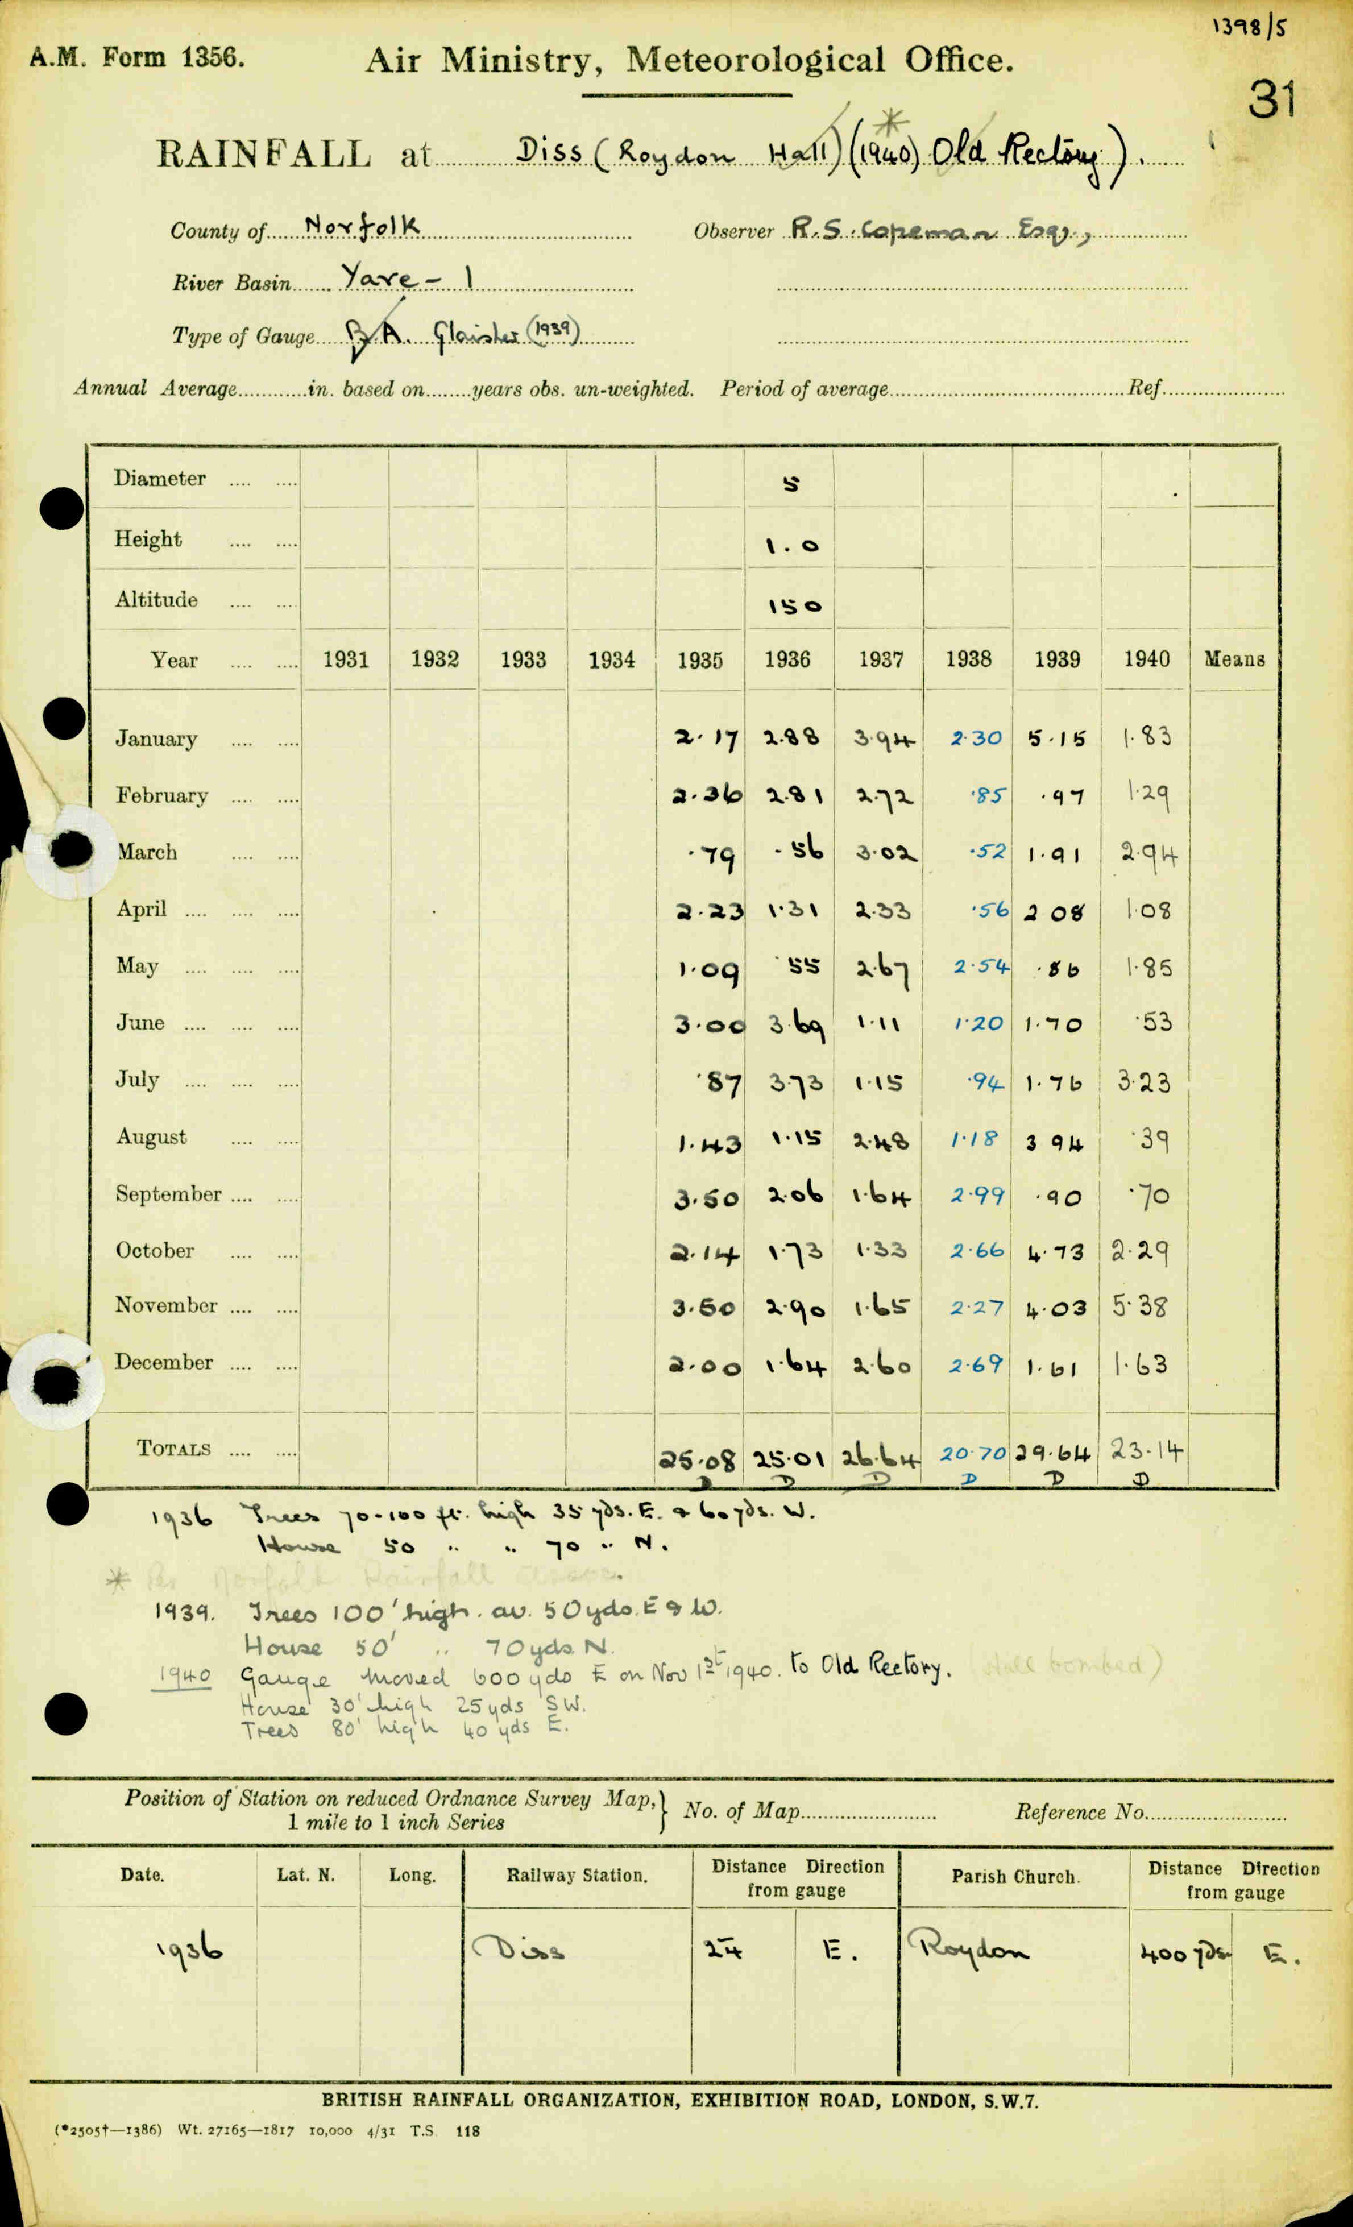 1398/5
A.M. Form 1356. Air Ministry, Meteorological Office.
31
RAINFALL at Diss (Roydon Hall) (1940) Old Rectory).
*
County of Norfolk Observer R.S. Copeman Esq.,
River Basin Yare - 1
Type of Gauge B.A. Glaisher (1939)
Annual Average in. based on years obs. un-weighted. Period of average Ref.
Diameter .... .... 5
Height .... .... 1.0
Altitude .... .... 150
Year .... .... 1931 1932 1933 1934 1935 1936 1937 1938 1939 1940 Means
January .... .... 2.17 2.88 3.94 2.30 5.15 1.83
February .... .... 2.36 2.81 2.72 .85 .97 1.29
March .... .... .79 .56 3.02 .52 1.91 2.94
April .... .... .... 2.23 1.31 2.33 .56 2 08 1.08
May .... .... .... 1.09 .55 2.67 2.54 .86 1.85
June .... .... .... 3.00 3.69 1.11 1.20 1.70 .53
July .... .... .... .87 3.73 1.15 .94 1.76 3.23
August .... .... 1.43 1.15 2.48 1.18 3 94 .39
September .... .... 3.50 2.06 1.64 2.99 .90 .70
October .... .... 2.14 1.73 1.33 2.66 4.73 2.29
November .... .... 3.50 2.90 1.65 2.27 4.03 5.38
December .... .... 2.00 1.64 2.60 2.69 1.61 1.63
TOTALS .... .... 25.08 25.01 26.64 20.70 29.64 23.14
D D D D D D
1936 Trees 70-100 ft. high 35 yds. E. & 60 yds. W.
House 50 " " 70 " N.
* Per Norfolk Rainfall Assoc.
1939. Trees 100' high. av. 50 yds. E & W.
House 50' " 70 yds N.
1940 Gauge moved 600 yds E on Nov 1st 1940. to Old Rectory. Hall bombed)
House 30' high 25 yds SW.
Trees 80' high 40 yds E.
Position of Station on reduced Ordnance Survey Map,} No. of Map Reference No.
1 mile to 1 inch Series
Date. Lat. N. Long. Railway Station. Distance Direction from gauge Parish Church. Distance Direction from gauge
1936 Diss E. Roydon 400 yds E.
BRITISH RAINFALL ORGANIZATION, EXHIBITION ROAD, LONDON, S.W.7.
(*2505†—1386) Wt. 27165—1817 10,000 4/31 T.S. 118